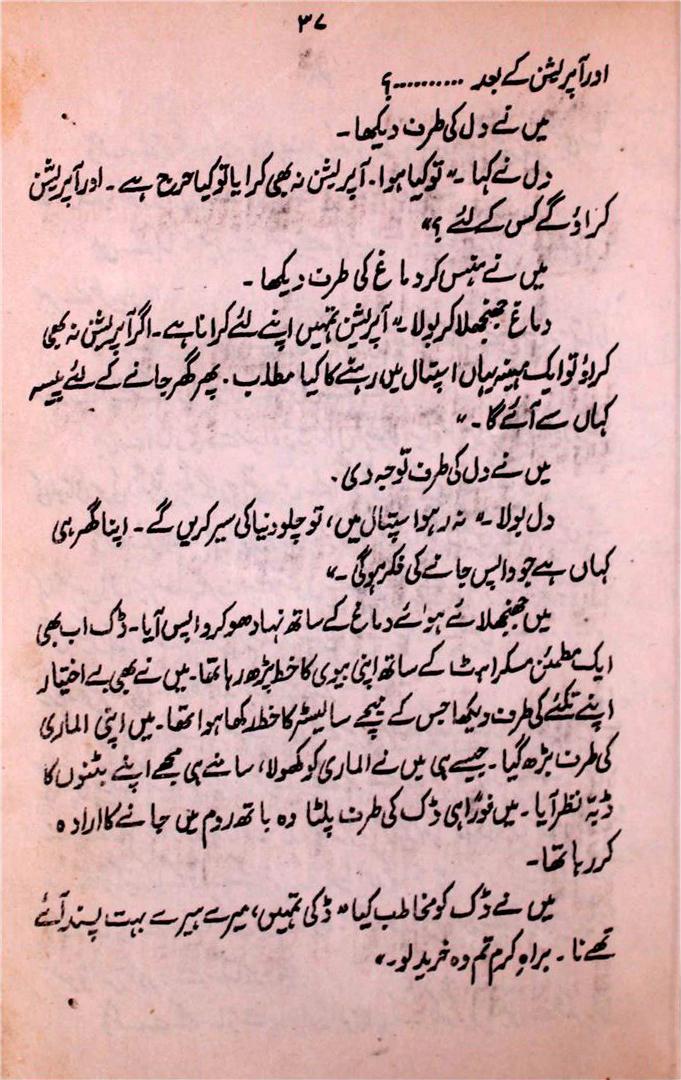 ۳۷
اور آپریشن کے بعد ..........؟
میں نے دل کی طرف دیکھا۔
دل نے کہا۔ "تو کیا ہوا۔ آپریشن نہ بھی کرایا تو کیا حرج ہے۔ اور آپریشن
کراؤ گے کس کے لئے ؟"
میں نے ہنس کر دماغ کی طرف دیکھا۔
دماغ جھنجھلا کر بولا۔ "آپریشن تمہیں اپنے لئے کرانا ہے۔ اگر آپریشن نہ بھی
کراؤ تو ایک مہینہ یہاں اسپتال میں رہنے کا کیا مطلب۔ پھر گھر جانے کے لئے پیسہ
کہاں سے آئے گا۔"
میں نے دل کی طرف توجہ دی۔
دل بولا۔ "نہ رہو اسپتال میں، تو چلو دنیا کی سیر کریں گے۔ اپنا گھر ہی
کہاں ہے جو واپس جانے کی فکر ہوگی۔"
میں جھنجھلائے ہوئے دماغ کے ساتھ نہا دھو کر واپس آیا۔ ڈک اب بھی
ایک مطمئن مسکراہٹ کے ساتھ اپنی بیوی کا خط پڑھ رہا تھا۔ میں نے بھی بے اختیار
اپنے تکئے کی طرف دیکھا جس کے نیچے سالیسٹر کا خط رکھا ہوا تھا۔ میں اپنی الماری
کی طرف بڑھ گیا۔ جیسے ہی میں نے الماری کو کھولا، سامنے ہی مجھے اپنے بٹنوں کا
ڈبّہ نظر آیا۔ میں فوراً ہی ڈک کی طرف پلٹا وہ باتھ روم میں جانے کا ارادہ
کر رہا تھا۔
میں نے ڈک کو مخاطب کیا "ڈکی تمہیں، میرے ہیرے بہت پسند آئے
تھے نا۔ براہِ کرم تم وہ خرید لو۔"